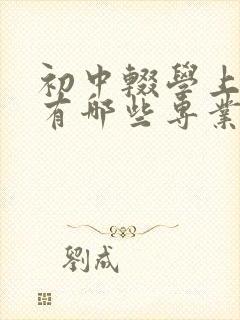 初中輟學上
有哪些專業
劉成